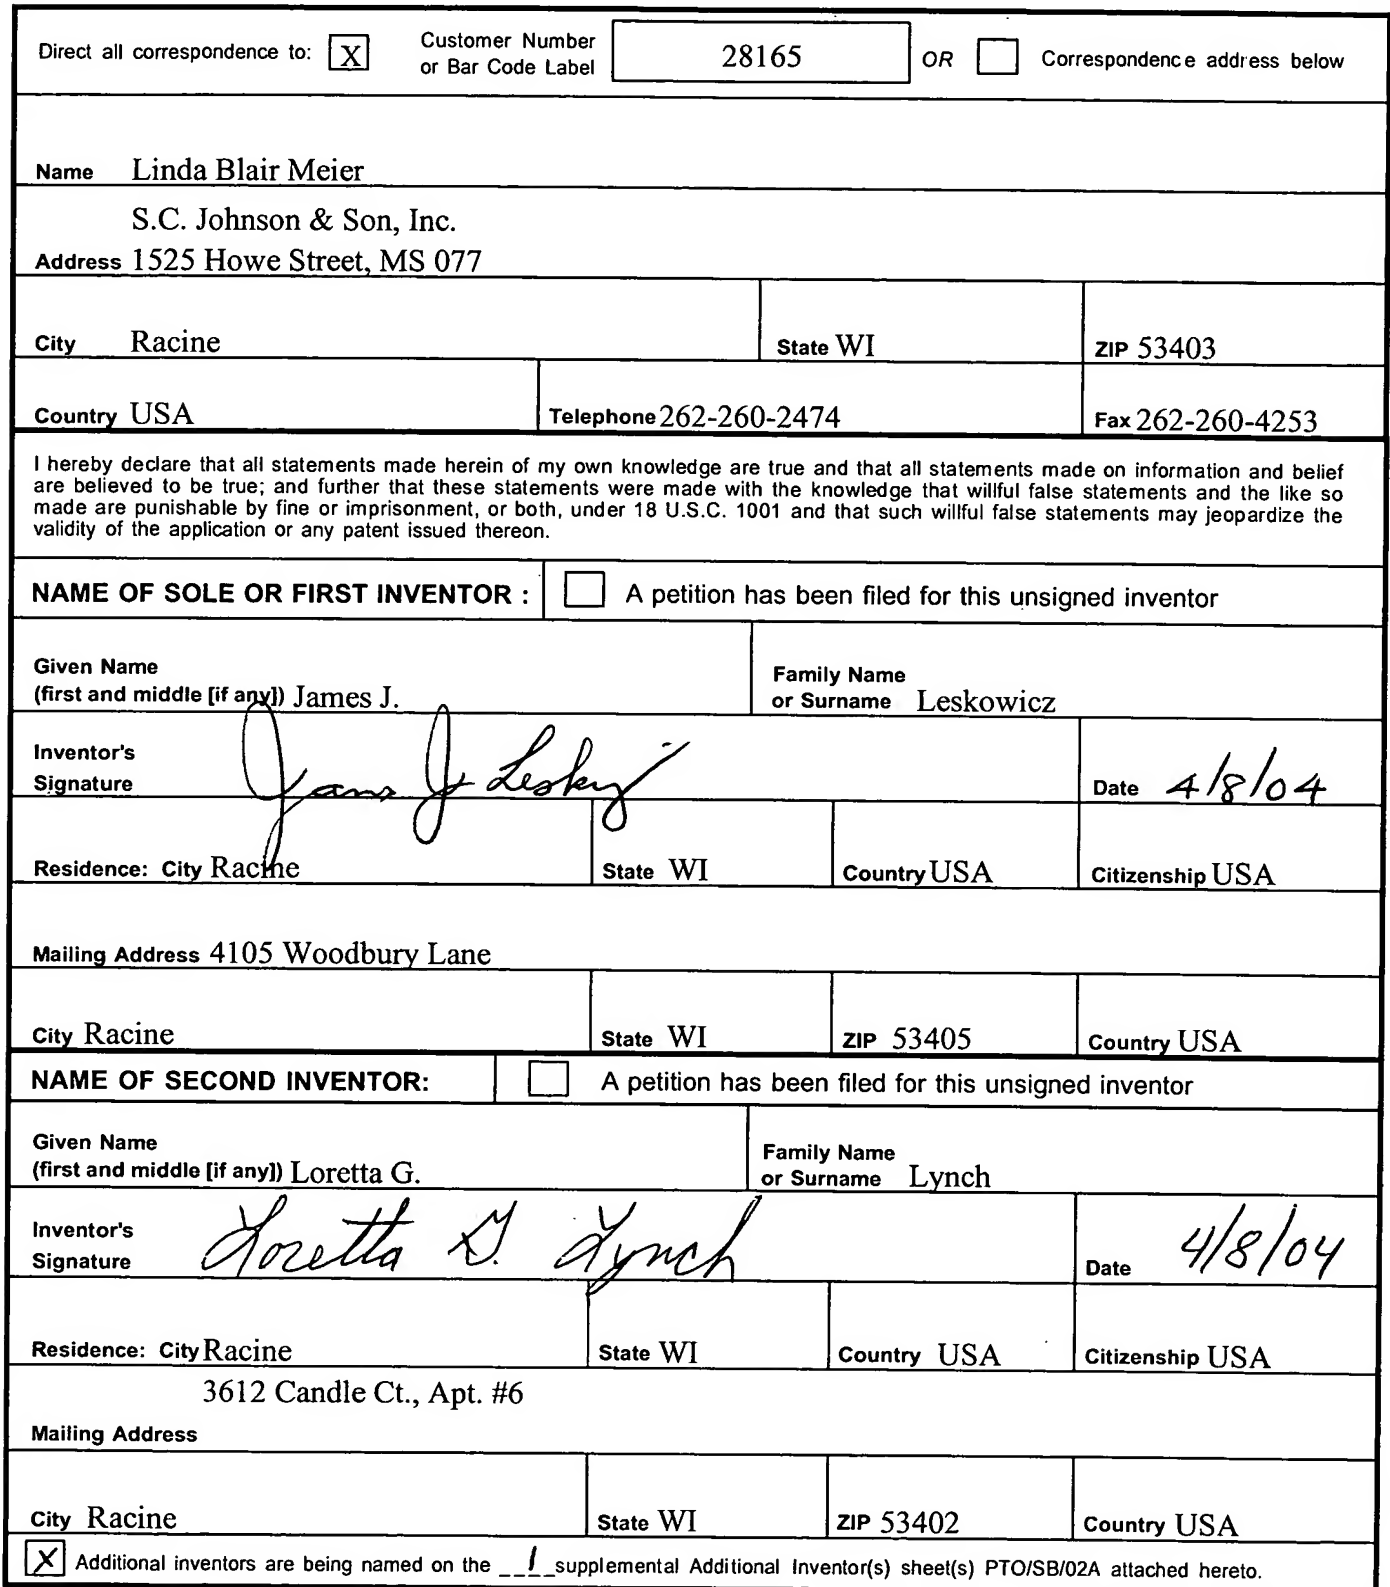 Direct all correspondence to: X Customer Number or Bar Code Label 28165 OR Correspondence address below
Name Linda Blair Meier
S.C. Johnson & Son, Inc.
Address 1525 Howe Street, MS 077
City Racine State WI ZIP 53403
Country USA Telephone 262-260-2474 Fax 262-260-4253
I hereby declare that all statements made herein of my own knowledge are true and that all statements made on information and belief
are believed to be true; and further that these statements were made with the knowledge that willful false statements and the like so
made are punishable by fine or imprisonment, or both, under 18 U.S.C. 1001 and that such willful false statements may jeopardize the
validity of the application or any patent issued thereon.
NAME OF SOLE OR FIRST INVENTOR : A petition has been filed for this unsigned inventor
Given Name
(first and middle [if any]) James J.
Family Name
or Surname Leskowicz
Inventor's
Signature
Date 4/8/04
Residence: City Racine State WI Country USA Citizenship USA
Mailing Address 4105 Woodbury Lane
City Racine State WI ZIP 53405 Country USA
NAME OF SECOND INVENTOR: A petition has been filed for this unsigned inventor
Given Name
(first and middle [if any]) Loretta G.
Family Name
or Surname Lynch
Inventor's
Signature Loretta G. Lynch
Date 4/8/04
Residence: City Racine State WI Country USA Citizenship USA
3612 Candle Ct., Apt. #6
Mailing Address
City Racine State WI ZIP 53402 Country USA
X Additional inventors are being named on the __1__supplemental Additional Inventor(s) sheet(s) PTO/SB/02A attached hereto.